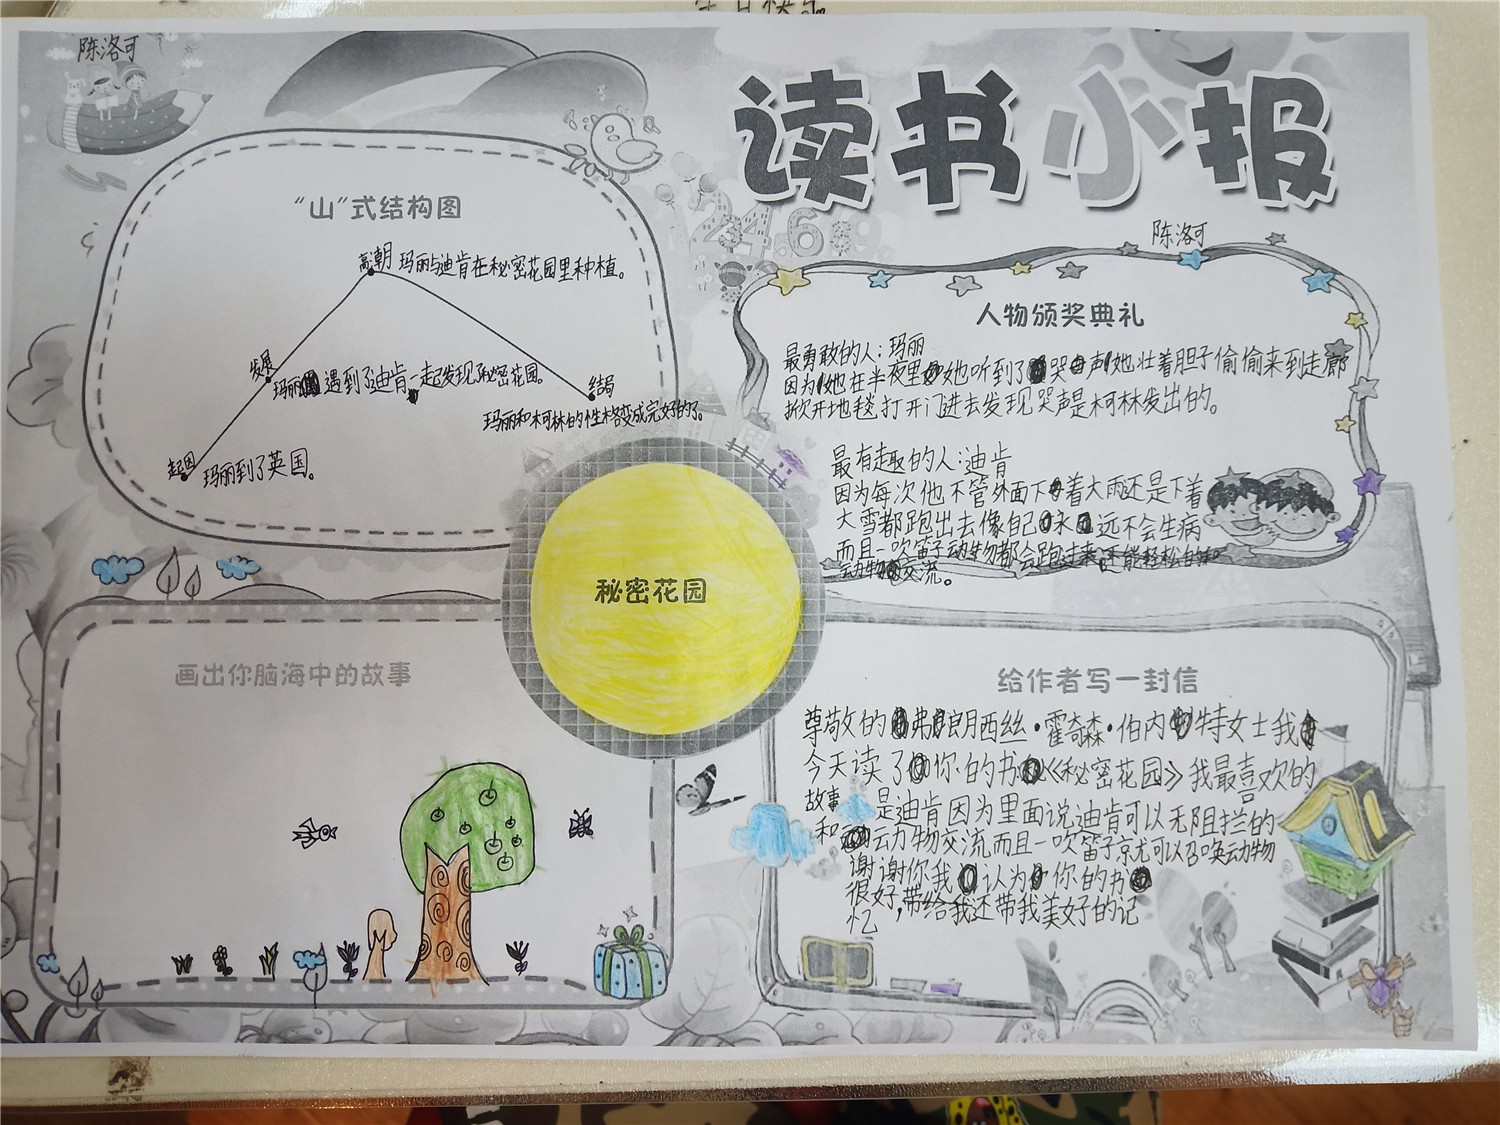 陈洛可
读书小报
陈洛可
"山"式结构图
高朝 玛丽与迪肯在秘密花园里种植。
发展
玛丽 遇到了迪肯一起发现秘密花园。
结局
玛丽和柯林的性格变成完好的了。
起因 玛丽到了英国。
人物颁奖典礼
最勇敢的人:玛丽
因为她在半夜里她听到了哭声她壮着胆子偷偷来到走廊
掀开地毯打开门进去发现哭声是柯林发出的。
最有趣的人:迪肯
因为每次他不管外面下着大雨还是下着
大雪都跑出去像自己永远不会生病
而且一吹笛子动物都会跑过来还能轻松的和
动物交流。
秘密花园
画出你脑海中的故事
给作者写一封信
尊敬的弗朗西丝·霍奇森·伯内特女士我
今天读了你的书《秘密花园》我最喜欢的
故事 是迪肯因为里面说迪肯可以无阻拦的
和动物交流而且一吹笛子京尤可以召唤动物
谢谢你我认为你的书
很好,带给我还带我美好的记
忆